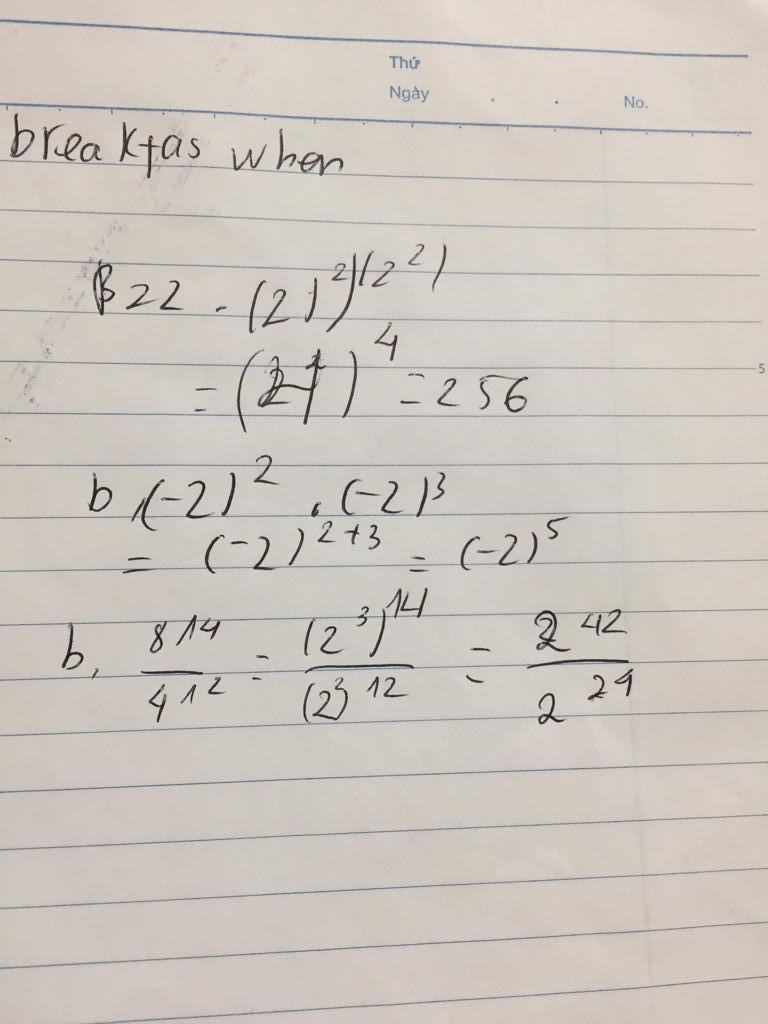 Thứ
Ngày . . No.
breakfas when
B22 - (2)²)(2²)
= ( )⁴ = 256
5
b, (-2)² . (-2)³
= (-2)²⁺³ = (-2)⁵
b, 8¹⁴/4¹² = (2³)¹⁴/(2²)¹² = 2⁴²/2²⁴